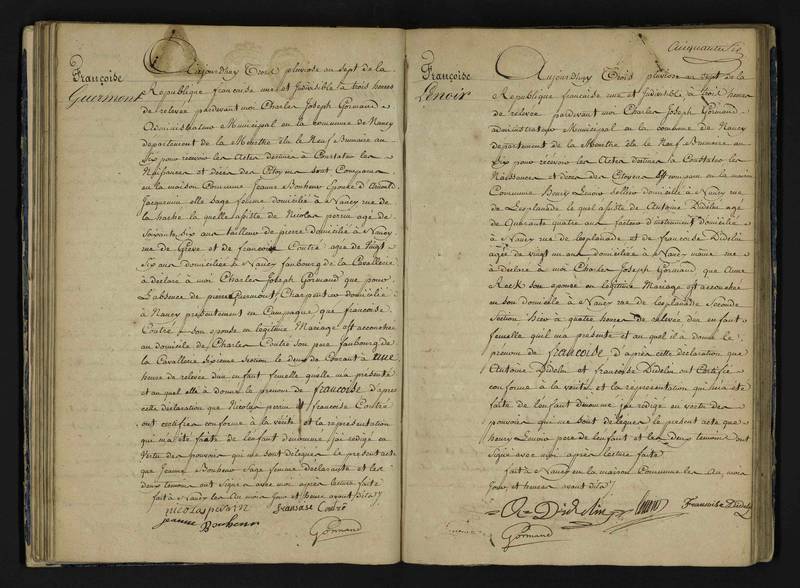 Françoise
Guermont
Aujourd'huy Trois pluviose an sept de la
Republique francaise une et Indivisible à trois heures
de relevée pardevant moi Charles Joseph Gormand
Administrateur Municipal en la commune de Nancy
departement de la Meurthe élu le Neuf Brumaire an
Six pour recevoir les Actes destinés à Constater les
Naissances et décès des Citoyens sont Comparus
en la maison Commune Jeanne Bonhenr épouse d'Arnould
Jacquemin elle sage femme domiciliée à Nancy rue de
la hache la quelle assistée de Nicolas perrin agé de
Soixante six ans tailleur de pierre domicilié à Nancy
rue de Grève et de francoise Contré agée de Vingt
Six ans domiciliée à Nancy faubourg de la Cavallerie
à déclaré à moi Charles Joseph Gormand que pour
L'absence de pierre Guermont Charpentier domicilié
à Nancy presentement en Campagne que francoise
Contré son épouse en légitime Mariage est accouchée
au domicile de Charles Contré son pere faubourg de
la Cavallerie Sixieme Section le deux du Courant à une
heure de relevée d'un enfant femelle quelle ma présenté
et au quel elle à donné le prenom de francoise d'apres
cette déclaration que Nicolas perrin et francoise Contré
ont certifiée conforme à la vérité et la représentation
qui m'a été faite de l'enfant dénommé j'ai rédigé en
Vertu des pouvoirs qui me sont délégués le présent acte
que Jeanne Bonhenr Sage femme déclarante et les
deux temoins ont Signé avec moi après lecture faite
fait à Nancy les An mois Jour et heure avant dits
nicolas perrin fransoise Contré
jeanne Bonhenr
Gormand
Cinquante Six
Françoise
Lenoir
Aujourd'huy Trois pluviose an Sept de la
Republique francaise une et Indivisible à trois heures
de relevée pardevant moi Charles Joseph Gormand
administrateur Municipal en la commune de Nancy
departement de la Meurthe élu le Neuf Brumaire an
Six pour recevoir les Actes destinés à Constater les
Naissances et décès des Citoyens Est comparu en la maison
Commune Henry Lenoir Sellier domicilié à Nancy rue
de Lesplanade le quel assisté de Antoine Didelin agé
de Quarante quatre ans facteur d'instrument domicilié
à Nancy rue de lesplanade et de francoise Didelin
agée de vingt un ans domiciliée à Nancy même rue
à déclaré à moi Charles Joseph Gormand que Anne
Reck son épouse en légitime Mariage est accouchée
en son domicile à Nancy rue de lesplanade Seconde
Section hier à quatre heures de relevée d'un enfant
femelle qu'il m'a présenté et au quel il a donné le
prenom de francoise d'après cette déclaration que
Antoine Didelin et francoise Didelin ont Certifiée
conforme à la vérité et la représentation qui m'a été
faite de l'enfant dénommé j'ai rédigé en vertu des
pouvoirs qui me sont délégués le présent acte que
henry Lenoir pere de l'enfant et les deux temoins ont
Signé avec moi après lecture faite
fait à Nancy en la maison Commune les An, mois
Jour et heures avant dits
A Didelin Lenoir Francoise Didelin
Gormand